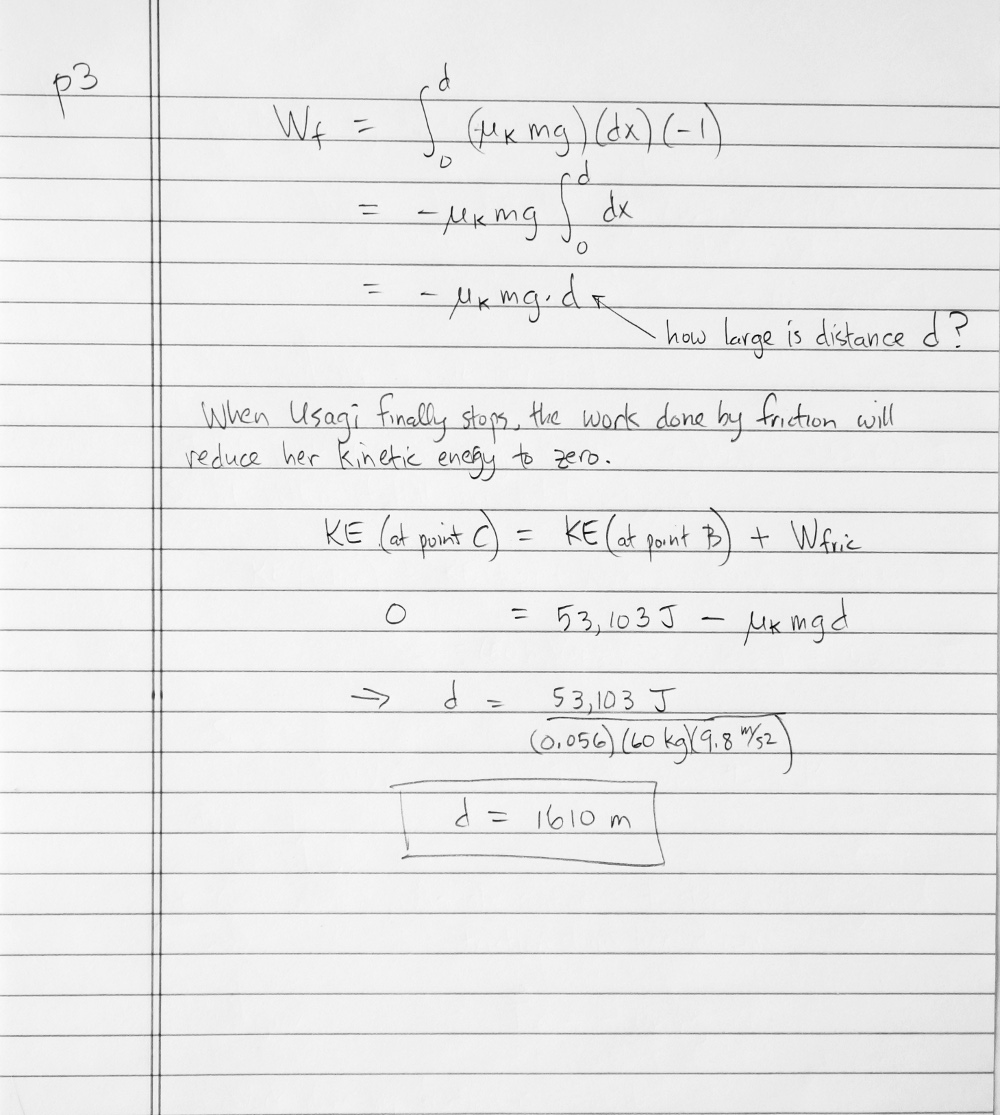 p3
W_f = ∫_0^d (μ_K mg)(dx)(-1)
= -μ_K mg ∫_0^d dx
= -μ_K mg · d
how large is distance d?
When Usagi finally stops, the work done by friction will
reduce her kinetic enegy to zero.
KE (at point C) = KE (at point B) + W_fric
0 = 53,103 J - μ_K mg d
⇒ d = 53,103 J
(0.056)(60 kg)(9.8 m/s2)
d = 1610 m